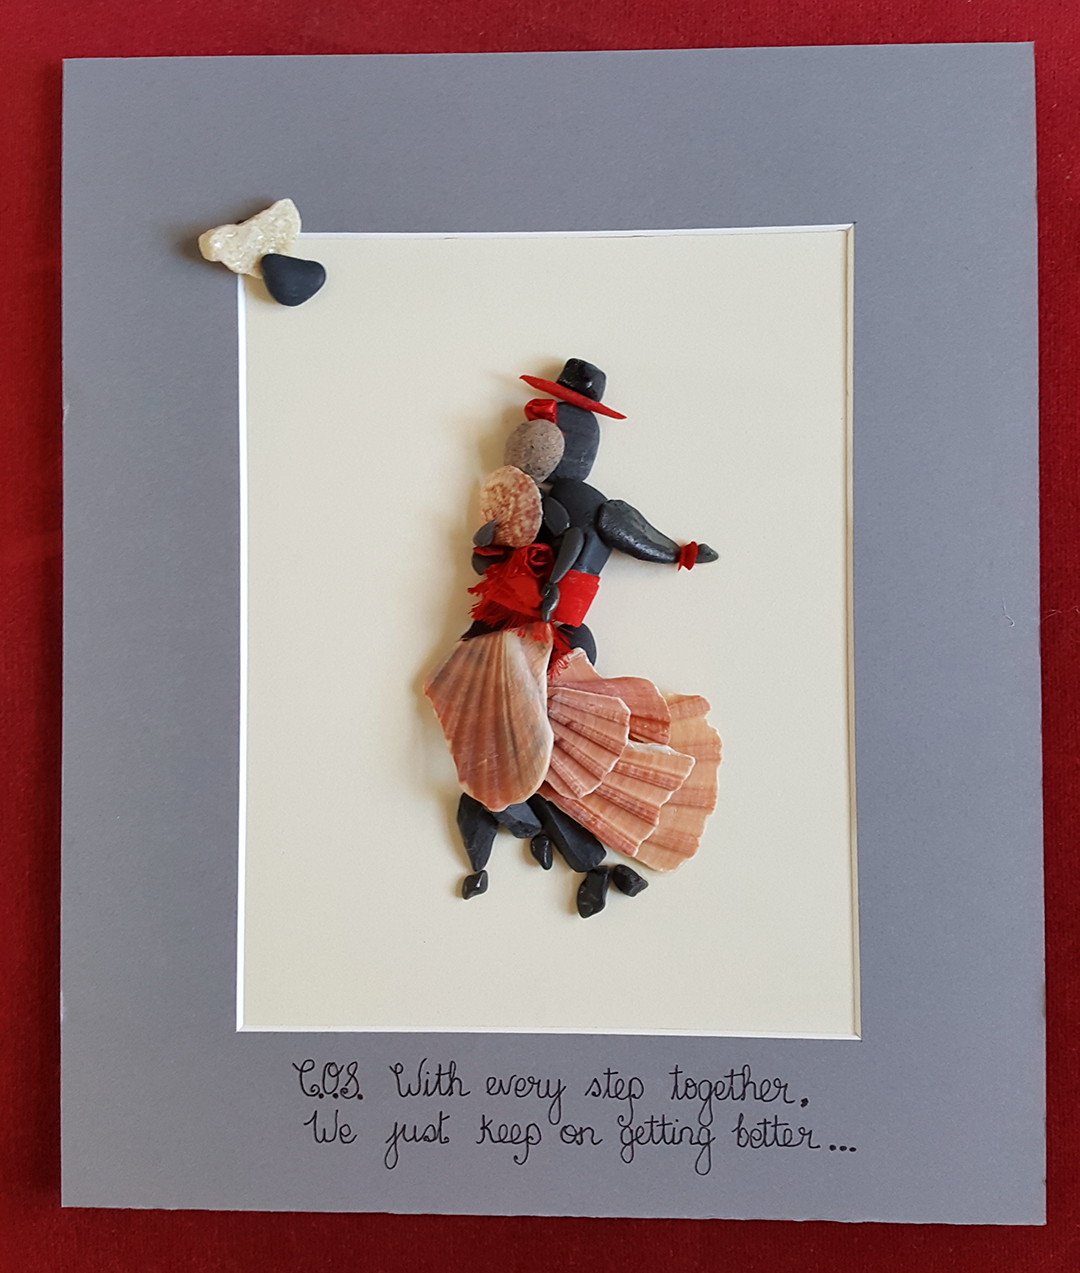 C.O.S. With every step together,
We just keep on getting better...